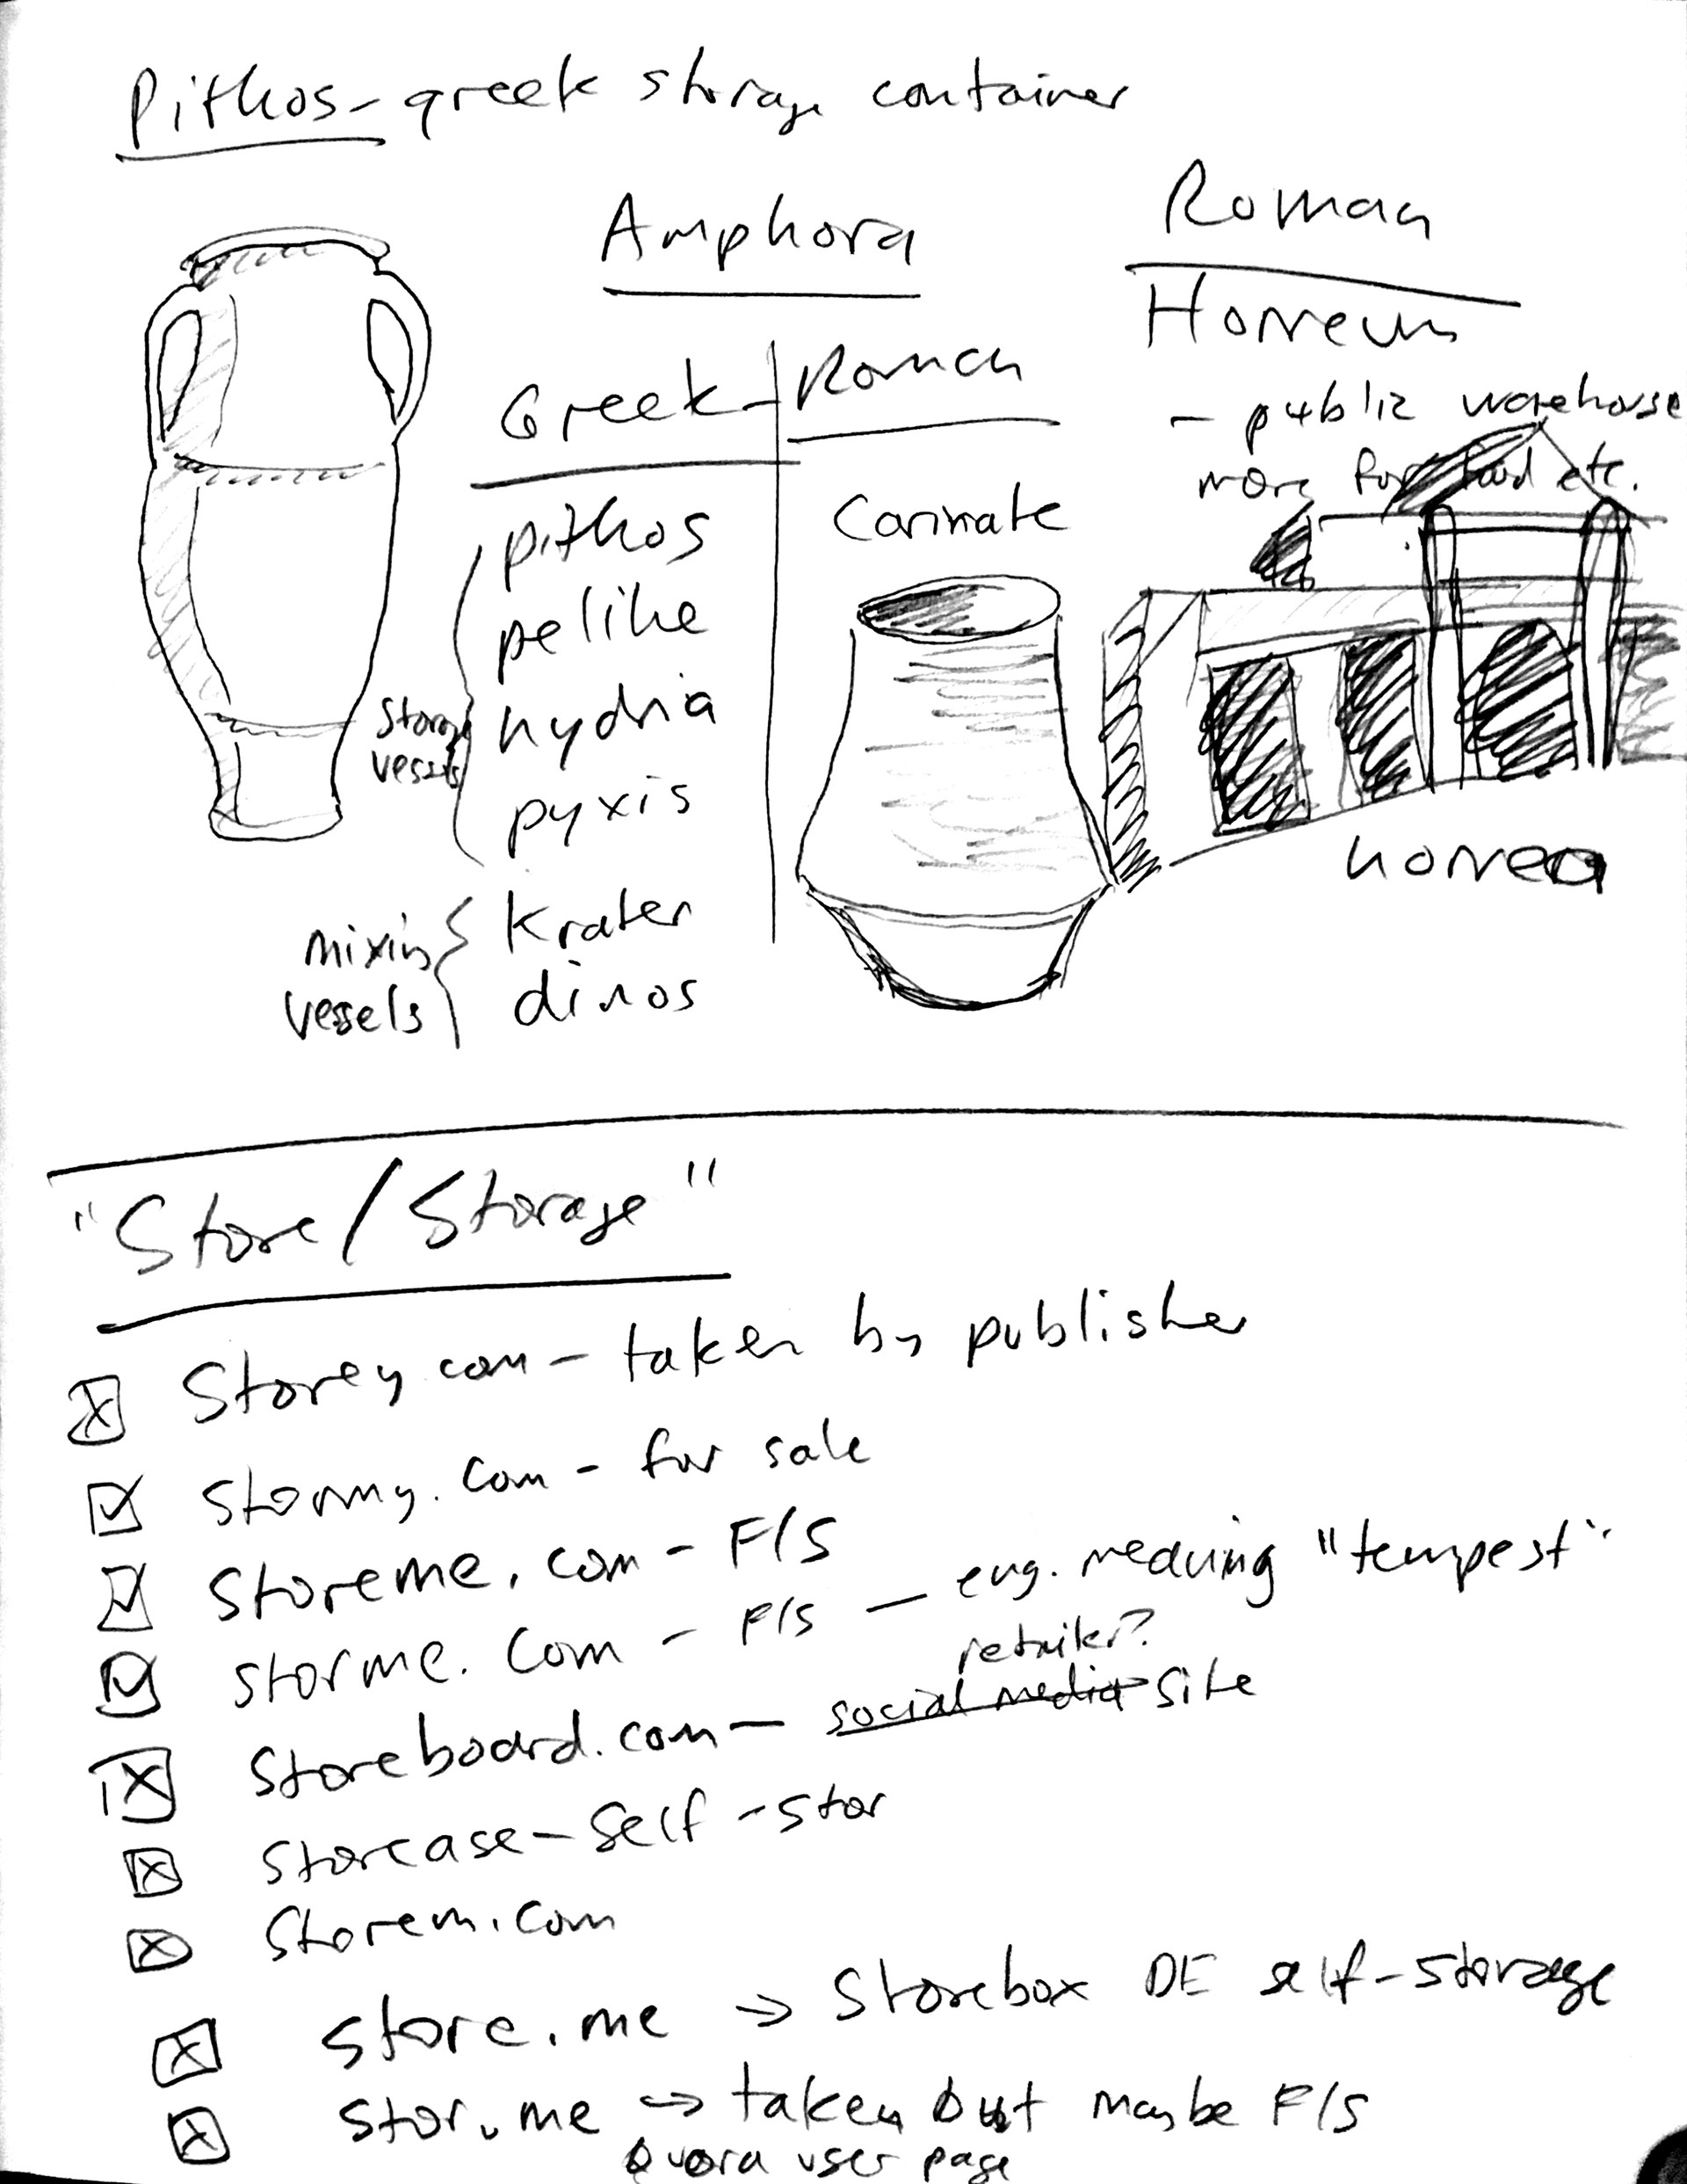 Pithos - greek storage container
Amphora
Greek - Roman
pithos
pelike
hydria
pyxis
storage
vessels
krater
dinos
mixing
vessels
Carinate
Roman
Horreum
- public warehouse
more for food etc.
horrea
"Store/Storage"
☒ Storey.com - taken by publisher
☑ stormy.com - for sale
☑ storeme.com - F/S
☑ storme.com - F/S - eng. meaning "tempest"
retailer?
☒ storeboard.com - social media site
☒ storcase - self-stor
☒ storem.com
☒ store.me → storebox DE self-storage
☒ stor.me → taken but maybe F/S
Quora user page